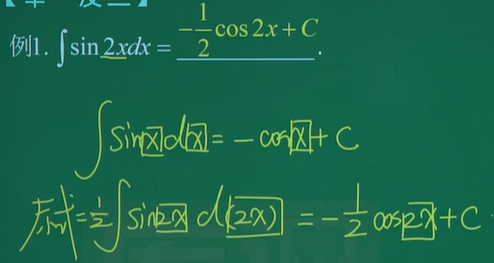 例1. ∫sin 2xdx = -1/2 cos 2x + C .
∫sin x d x = - cos x + C
原式 = 1/2 ∫sin 2x d(2x) = - 1/2 cos 2x + C